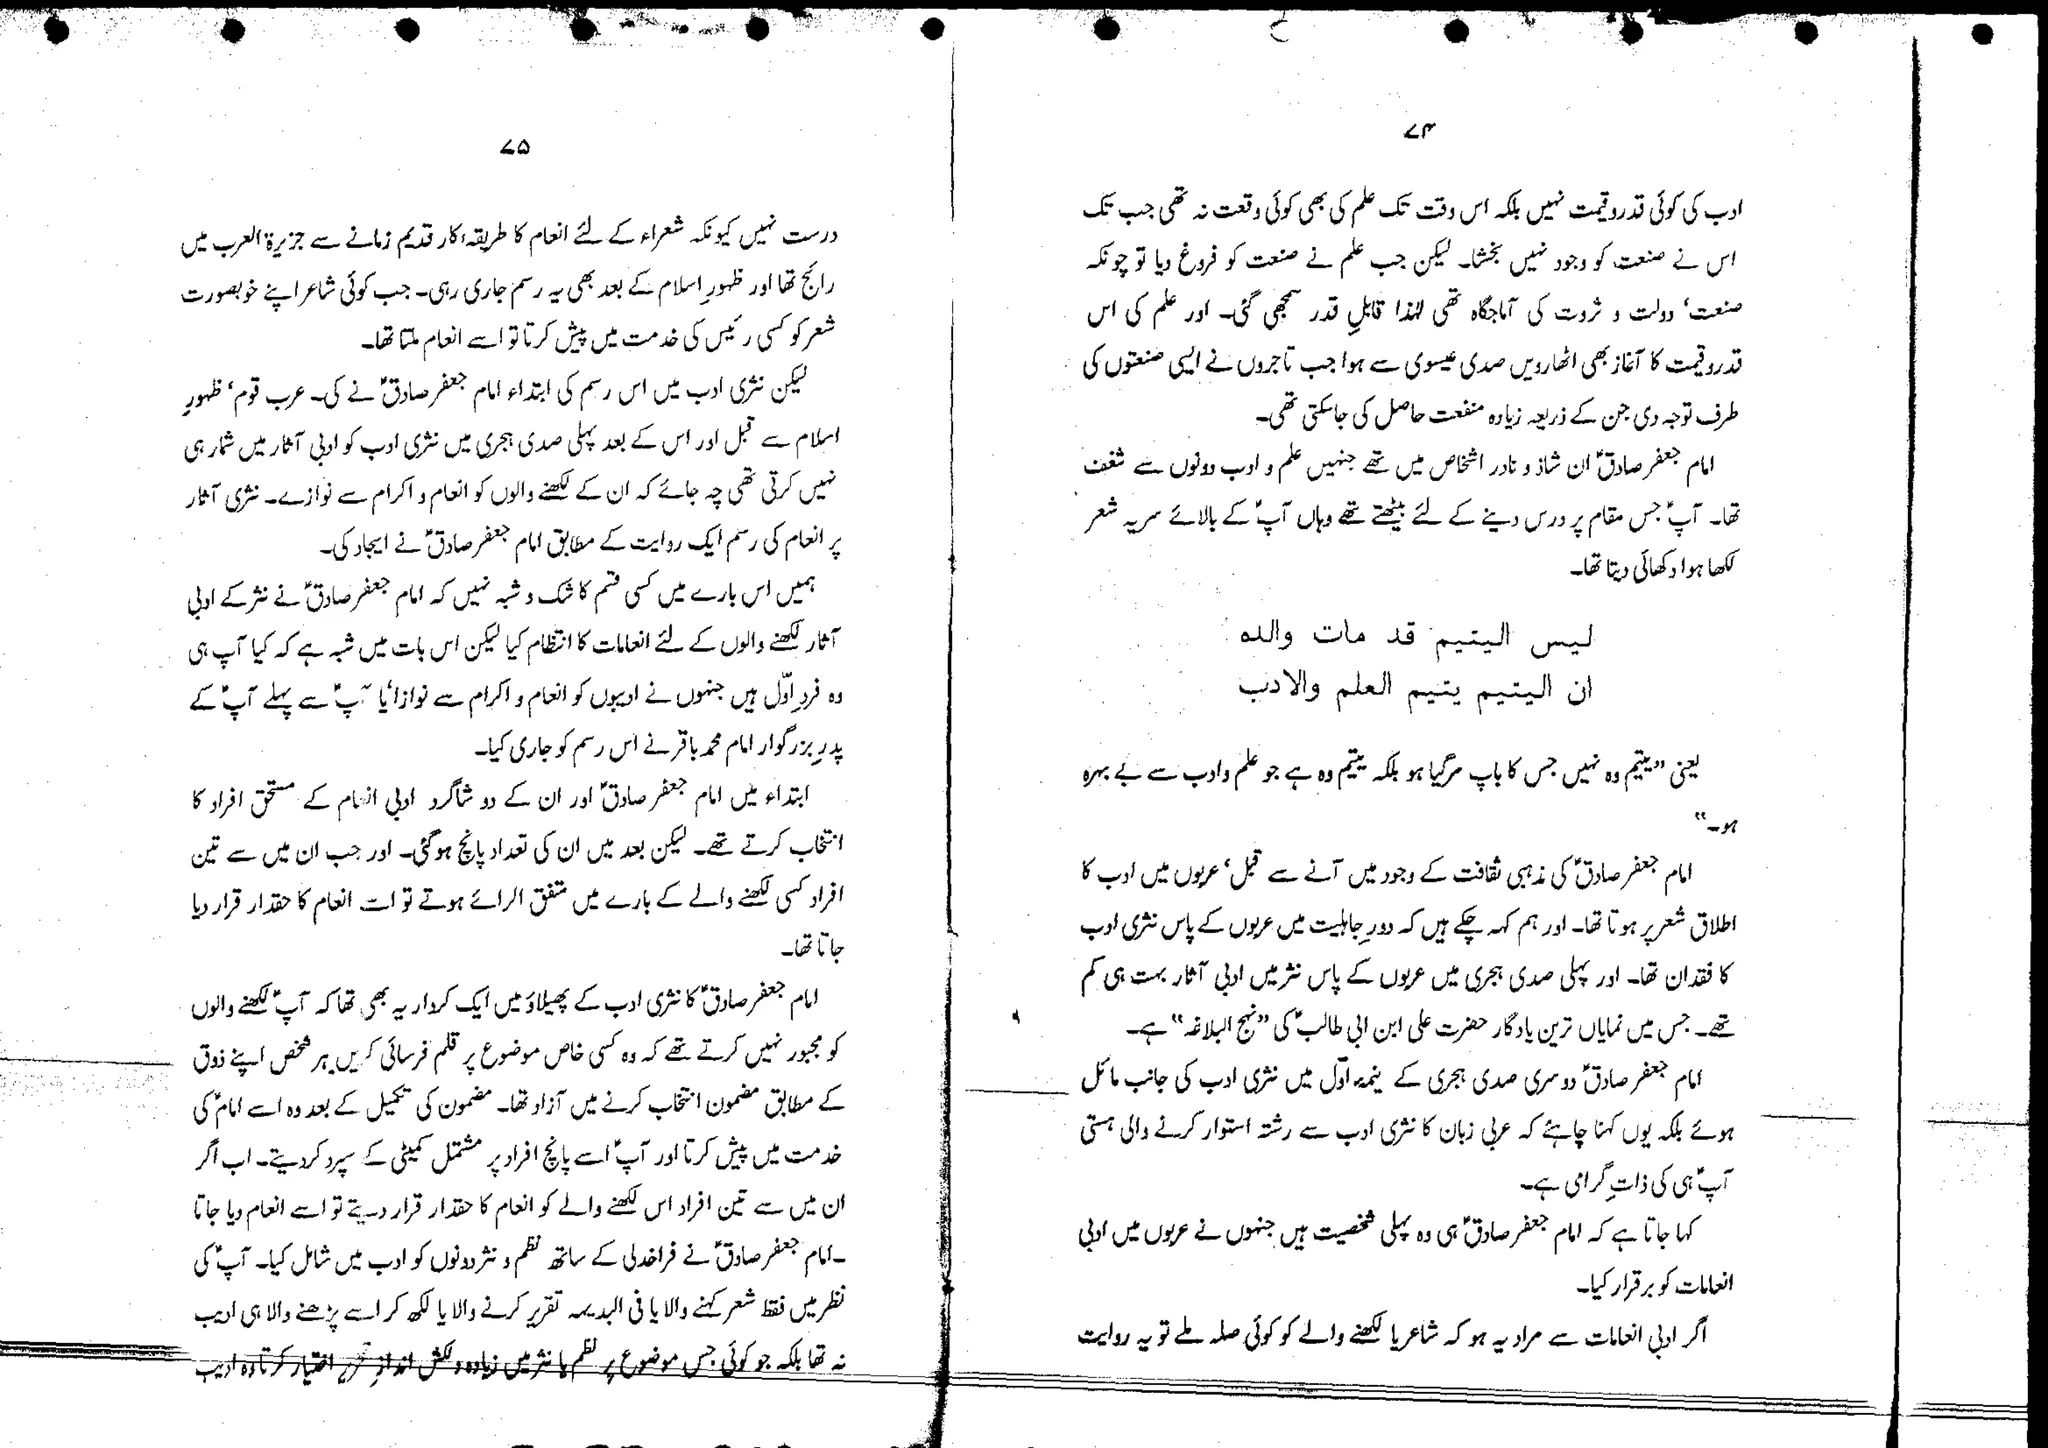 ۷۴
ادب کی کوئی قدر و قیمت نہیں بلکہ اس وقت تک علم کی بھی کوئی وقعت نہ تھی جب تک
اس نے صنعت کو وجود نہیں بخشا۔ لیکن جب علم نے صنعت کو فروغ دیا تو چونکہ
صنعت، دولت و ثروت کی آماجگاہ تھی لہٰذا قابلِ قدر سمجھی گئی۔ اور علم کی اس
قدر و قیمت کا آغاز بھی اٹھارویں صدی عیسوی سے ہوا جب تاجروں نے ایسی صنعتوں کی
طرف توجہ دی جن کے ذریعہ زیادہ منفعت حاصل کی جاسکتی تھی۔
امام جعفر صادقؑ ان شاذ و نادر اشخاص میں تھے جنہیں علم و ادب دونوں سے شغف
تھا۔ آپؑ جس مقام پر درس دینے کے لئے بیٹھتے تھے وہاں آپؑ کے بالائے سر یہ شعر
لکھا ہوا دکھائی دیتا تھا۔
ليس اليتيم قد مات والده
ان اليتيم يتيم العلم والادب
یعنی ”یتیم وہ نہیں جس کا باپ مرگیا ہو بلکہ یتیم وہ ہے جو علم و ادب سے بے بہرہ
ہو۔“
امام جعفر صادقؑ کی مذہبی ثقافت کے وجود میں آنے سے قبل، عربوں میں ادب کا
اطلاق شعر پر ہوتا تھا۔ اور ہم کہہ چکے ہیں کہ دورِ جاہلیت میں عربوں کے پاس نثری ادب
کا فقدان تھا۔ اور پہلی صدی ہجری میں عربوں کے پاس نثر میں ادبی آثار بہت ہی کم
تھے۔ جس میں نمایاں ترین یادگار حضرت علی ابن ابی طالبؑ کی ”نہج البلاغہ“ ہے۔
امام جعفر صادقؑ دوسری صدی ہجری کے نیمۂ اوّل میں نثری ادب کی جانب مائل
ہوئے بلکہ یوں کہنا چاہئے کہ عربی زبان کا نثری ادب سے رشتہ استوار کرنے والی ہستی
آپؑ ہی کی ذاتِ گرامی ہے۔
کہا جاتا ہے کہ امام جعفر صادقؑ ہی وہ پہلی شخصیت ہیں جنہوں نے عربوں میں ادبی
انعامات کو برقرار کیا۔
اگر ادبی انعامات سے مراد یہ ہو کہ شاعر یا لکھنے والے کو کوئی صلہ ملے تو یہ روایت
۷۵
درست نہیں کیونکہ شعراء کے لئے انعام کا طریقۂ کار قدیم زمانے سے جزیرۃ العرب میں
رائج تھا اور ظہورِ اسلام کے بعد بھی یہ رسم جاری رہی۔ جب کوئی شاعر اپنے خوبصورت
شعر کو کسی رئیس کی خدمت میں پیش کرتا تو اسے انعام ملتا تھا۔
لیکن نثری ادب میں اس رسم کی ابتداء امام جعفر صادقؑ نے کی۔ عرب قوم، ظہورِ
اسلام سے قبل اور اس کے بعد پہلی صدی ہجری میں نثری ادب کو ادبی آثار میں شمار ہی
نہیں کرتی تھی چہ جائے کہ ان کے لکھنے والوں کو انعام و اکرام سے نوازے۔ نثری آثار
پر انعام کی رسم ایک روایت کے مطابق امام جعفر صادقؑ نے ایجاد کی۔
ہمیں اس بارے میں کسی قسم کا شک و شبہ نہیں کہ امام جعفر صادقؑ نے نثر کے ادبی
آثار لکھنے والوں کے لئے انعامات کا انتظام کیا لیکن اس بات میں شبہ ہے کہ کیا آپ ہی
وہ فردِ اوّل ہیں جنہوں نے ادیبوں کو انعام و اکرام سے نوازا، یا آپؑ سے پہلے آپؑ کے
پدرِ بزرگوار امام محمد باقر نے اس رسم کو جاری کیا۔
ابتداء میں امام جعفر صادقؑ اور ان کے دو شاگرد ادبی انعام کے مستحق افراد کا
انتخاب کرتے تھے۔ لیکن بعد میں ان کی تعداد پانچ ہوگئی۔ اور جب ان میں سے تین
افراد کسی لکھنے والے کے بارے میں متفق الرائے ہوتے تو اسے انعام کا حقدار قرار دیا
جاتا تھا۔
امام جعفر صادقؑ کا نثری ادب کے پھیلاؤ میں ایک کردار یہ بھی تھا کہ آپؑ لکھنے والوں
کو مجبور نہیں کرتے تھے کہ وہ کسی خاص موضوع پر قلم فرسائی کریں ہر شخص اپنے ذوق
کے مطابق مضمون انتخاب کرنے میں آزاد تھا۔ مضمون کی تکمیل کے بعد وہ اسے امامؑ کی
خدمت میں پیش کرتا اور آپؑ اسے پانچ افراد پر مشتمل کمیٹی کے سپرد کردیتے۔ اب اگر
ان میں سے تین افراد اس لکھنے والے کو انعام کا حقدار قرار دیتے تو اسے انعام دیا جاتا
۔امام جعفر صادقؑ نے فراخدلی کے ساتھ نظم و نثر دونوں کو ادب میں شامل کیا۔ آپؑ کی
نظر میں فقط شعر کہنے والا یا فی البدیہہ تقریر کرنے والا یا لکھ کر اسے پڑھنے والا ہی ادیب
نہ تھا بلکہ جو کوئی جس موضوع پر نظم یا نثر میں زیادہ دلکش اندازِ اختیار کرتا وہ ادیب